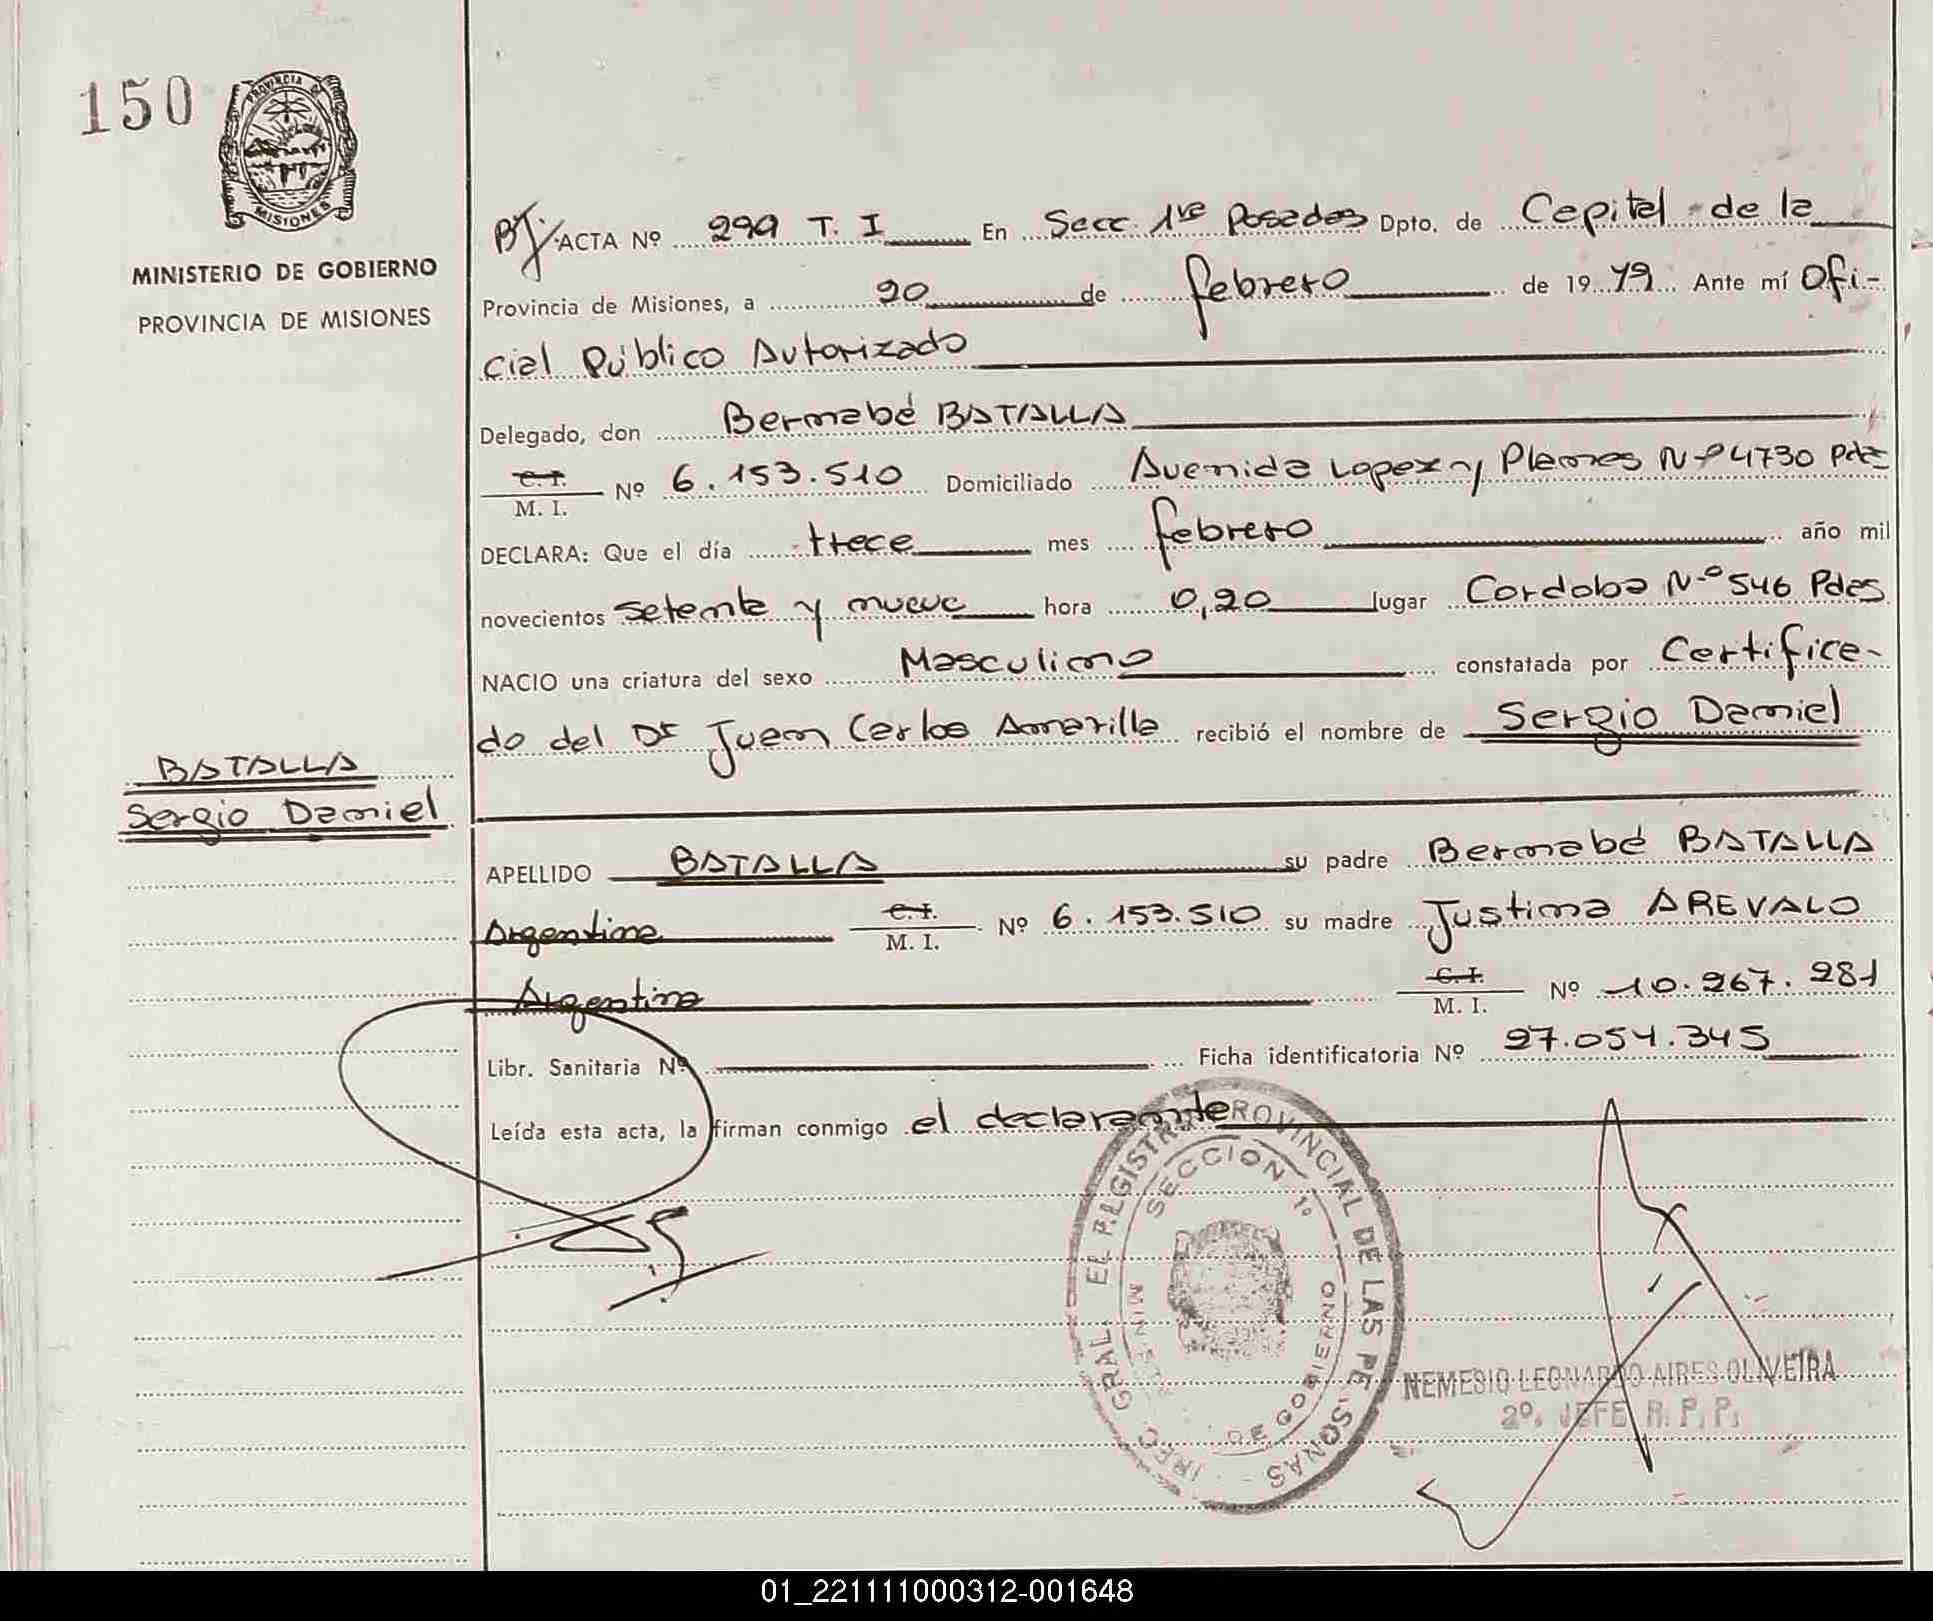 150
PROVINCIA DE
MISIONES
MINISTERIO DE GOBIERNO
PROVINCIA DE MISIONES
ACTA Nº 299 T. I En Secc 1ra Posadas Dpto. de Capital de la
Provincia de Misiones, a 20 de febrero de 1979 Ante mí Ofi-
cial Público Autorizado
Delegado, don Bernabé BATALLA
C. I.
M. I. Nº 6.153.510 Domiciliado Avenida Lopez y Planes Nº 4730 Pdas
DECLARA: Que el día trece mes febrero año mil
novecientos setenta y nueve hora 0,20 lugar Cordoba Nº 546 Pdas
NACIO una criatura del sexo Masculino constatada por Certifica-
do del Dr Juan Carlos Amarilla recibió el nombre de Sergio Daniel
BATALLA
Sergio Daniel
APELLIDO BATALLA su padre Bernabé BATALLA
Argentino C. I. M. I. Nº 6.153.510 su madre Justina AREVALO
Argentina C. I. M. I. Nº 10.267.281
Libr. Sanitaria Nº Ficha identificatoria Nº 27.054.345
Leída esta acta, la firman conmigo el declarante
GRAL. EL REGISTRO PROVINCIAL DE LAS PERSONAS
SECCION 1º
MINISTERIO DE GOBIERNO
NEMESIO LEONARDO AIRES OLIVEIRA
2º. JEFE R. P. P.
01_221111000312-001648